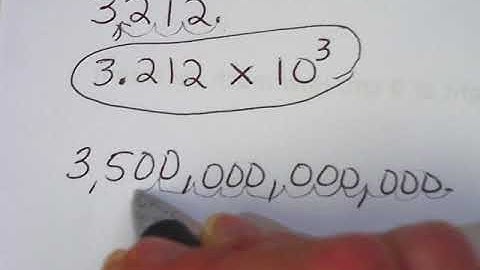 3,212.
3.212 x 10³
3,500,000,000,000.